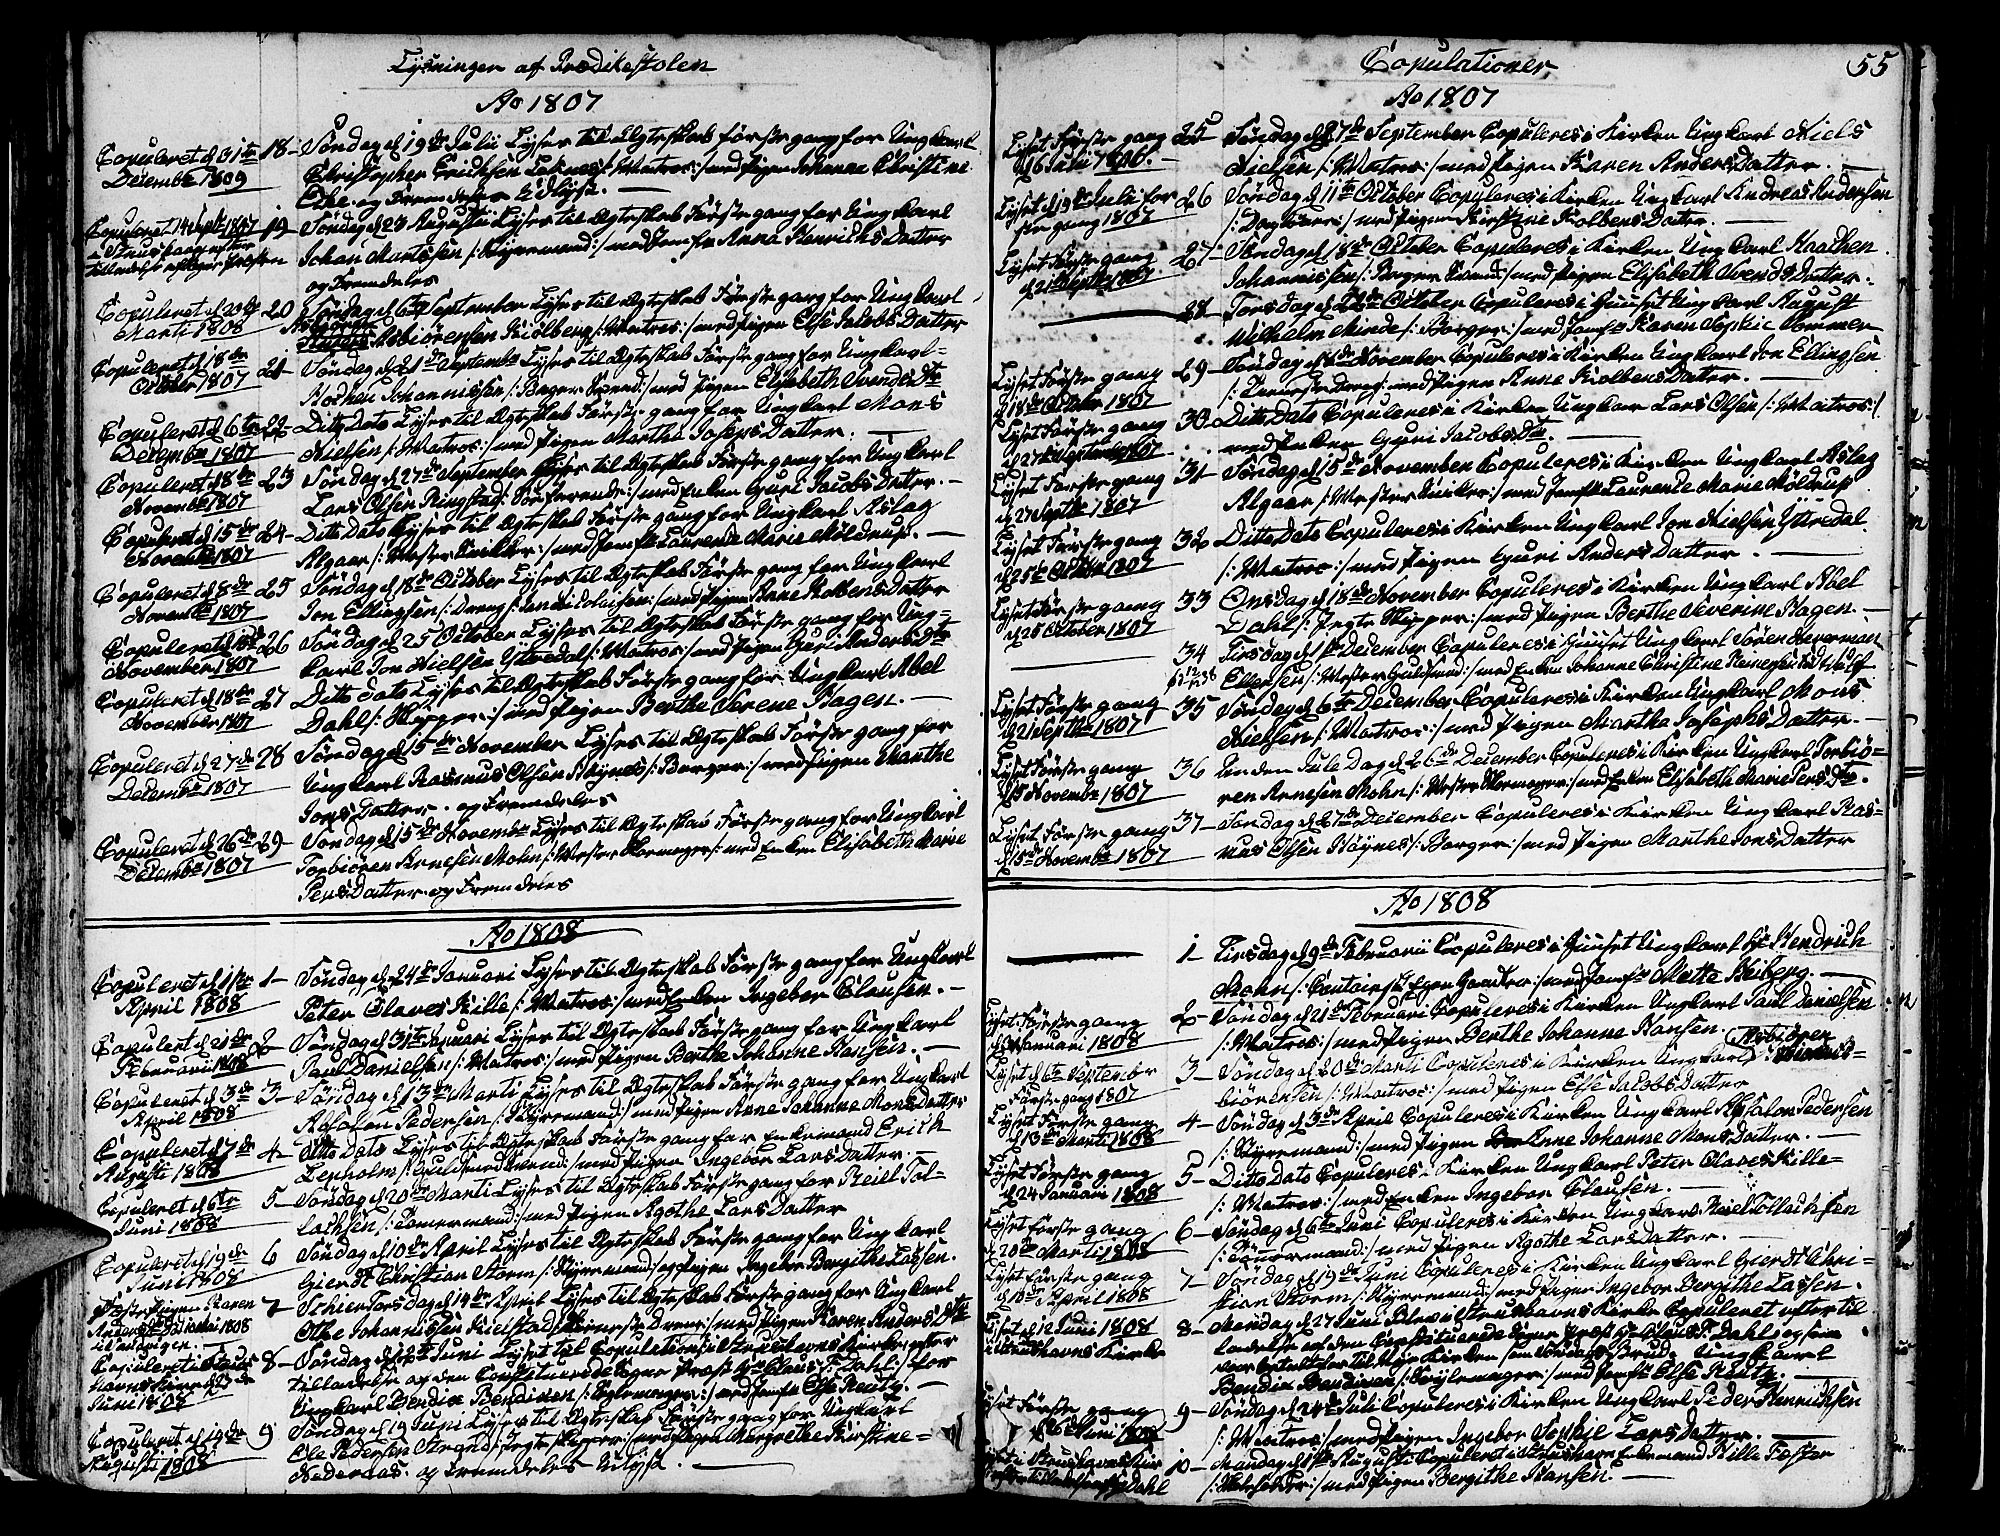 Lysninger af Prædikestolen
Ao 1807
Copuleret d 31te
December 1809
18- Søndag d 19de Julii Lyses til Ægteskab første gang for Ungkarl
Christopher Erichsen /: Matros :/ med Pigen Johanne Christine
og Fremdeles Udlyst. —
Copuleret 14 Sept 1807
19 Søndag d 23 Augusti Lyses til Ægteskab første gang for Ungkarl
Johan Martssen /: Styrermand :/ med Jomfr Anna Henrichs Datter
og Fremdeles
Copuleret d 20de
Marti 1808
20 Søndag d 6te September Lyses til Ægteskab første gang for Ungkarl
Asbiørensen /: Matros :/ med Pigen Else Jacobs Datter
Copuleret d 18de
October 1807
21 Søndag d 21de Septembr Lyses til Ægteskab første gang for Ungkarl
Johannissen /: Borger Svend :/ med Pigen Elisabeth Svends Dtr
Copuleret d 6te
December 1807
22 Ditto Dato Lyses til Ægteskab første gang for Ungkarl Mons
Nielsen /: Matros :/ med Pigen Martha Josephs Datter. —
Copuleret d 8de
November 1807
23 Søndag d 27de September Lyses til Ægteskab første gang for Ungkarl
Lars Olsen Ringstad /: Søefarende :/ med Enken Guri Jacobs Datter. —
Copuleret d 15de
November 1807
24- Ditto Dato Lyses til Ægteskab første gang for Ungkarl Aslag
Algaar /: Mester Snikker :/ med Jomfr Laurense Marie Møldrup. —
Copuleret d 8de
November 1807
25 Søndag d 18de October Lyses til Ægteskab første gang for Ungkarl
Jon Ellingsen /: Dreng :/ med Pigen Anne Kolbens Datter
Copuleret d
November 1807
26 Søndag d 25 October Lyses til Ægteskab første gang for Ung-
karl Jon Nielsen Ystredal /: Matros :/ med Pigen Guri Anders Dtr
Copuleret d 18de
November 1807
27 Ditto Dato Lyses til Ægteskab første gang for Ungkarl Abel
Dahl /: Skipper :/ med Pigen Berthe Serene Hagen. —
Copuleret d 27de
December 1807
28 Søndag d 15de November Lyses til Ægteskab første gang for
Ungkarl Rasmus Olsen Røynes /: Borger :/ med Pigen Marthe
Jons Datter. og Fremdeles
Copuleret d 26de
December 1807
29- Søndag d 15de Novembr Lyses til Ægteskab første gang for Ungkarl
Torbiøren Arnesen Mohn /: Mester Skomager :/ med Enken Elisabeth Marie
Pers Datter. og Fremdeles
Ao 1808
Copuleret d
April 1808
1- Søndag d 24de Januari Lyses til Ægteskab første gang for Ungkarl
Peter Claves Kille /: Matros :/ med Enken Ingebor Clausen. —
Copuleret d 21de
Februari 1808
2- Søndag d 31te Januari Lyses til Ægteskab første gang for Ungkarl
Paul Danielsen /: Matros :/ med Pigen Berthe Johanne Hansen. —
Copuleret d 3de
April 1808
3- Søndag d 13de Marti Lyses til Ægteskab første gang for Ungkarl
Absalon Pedersen /: Styrermand :/ med Pigen Anne Johanne Mons Datter
Copuleret d 7de
Augusti 1808
4- Ditto Dato Lyses til Ægteskab første gang for Enkemand Erich
Lenholm /: Guldsmed Svend :/ med Pigen Ingebor Lars Datter. —
Copuleret d 6te
Juni 1808
5- Søndag d 20de Marti Lyses til Ægteskab første gang for Reiel Tol-
lachsen /: Tømermand :/ med Pigen Agothe Lars Datter
Copuleret d 19de
Juni 1808
6 Søndag d 10de April Lyses til Ægteskab første gang for Ungkarl
Gierdt Christian Storm /: Styrermand :/ og Pigen Ingebor Bergithe Lassen.
7- Schier Torsdag d 14de April Lyses til Ægteskab første gang for Ungkarl
Othe Johannissen Kielstad /: Dreng :/ med Pigen Karen Anders Dtr
Copuleret i Strus
havns Kirke d
Juni 1808
8- Søndag d 12te Juni Lyset til Copulation i Strushavns Kirke efter
tilladelse af den Constituerede Signe Prost Hr Claus F. Dahl /: for
Ungkarl Bendix Bendixen /: Seglemager :/ med Jomfr Else Reutz. —
Copuleret d 14de
Augusti 1808
9 Søndag d 19 Juni Lyses til Ægteskab første gang for Ungkarl
Ole Pedersen Strand /: Jegte Skipper :/ med Pigen Margrethe Kirstine
og Fremdeles Udlyst. —
Copulationer
55
Ao 1807
Lyset første gang
d 16 Juli 1806. —
25 Søndag d 27de September Copuleres i Kirken Ungkarl Niels
Nielsen /: Matros :/ med Pigen Karen Anders Datter. —
Lyset d 19de Juli før
ste gang 1807
26 Søndag d 11te October Copuleres i Kirken Ungkarl Andreas Andersen
/: Dagløber :/ med Pigen Kirstine Kolbens Datter —
Lyset første gang
d 21 Septbr 1807
27- Søndag d 18de October Copuleres i Kirken Ungkarl
Johannissen /: Borger Svend :/ med Pigen Elisabeth Svends Datter. —
28 Torsdag d October Copuleres i Huuset Ungkarl August
Wilhelm Minde /: Borger :/ med Jomfr Karen Sophie Sommer
Lyset første gang
d 18de October 1807
29- Søndag d 8de November Copuleres i Kirken Ungkarl Jon Ellingsen
med Pigen Anne Kolbens Datter. —
Lyset første gang
d 27 September 1807
30 Ditto Dato Copuleres i Kirken Ungkarl Lars Olsen /: Matros :/
med Enken Guri Jacobs Dtr. —
Lyset første gang
d 27 Septbr 1807
31- Søndag d 15de November Copuleres i Kirken Ungkarl Aslag
Algaar /: Mester Snikker :/ med Jomfr Laurense Marie Møldrup
Lyset første gang
d 25 Octobr 1807
32 Ditto Dato Copuleres i Kirken Ungkarl Jon Nielsen Ystredal
/: Matros :/ med Pigen Guri Anders Datter. —
Lyset første gang
d 25 October 1807
33 Onsdag d 18de November Copuleres i Kirken Ungkarl Abel
Dahl /: Jegte Skipper :/ med Pigen Berthe Severine Hagen. —
34 Tirsdag d 1te December Copuleres i Huuset Ungkarl Søren
Ellersen /: Mester Guldsmed :/ med Enken Johanne Christine
Lyset første gang
d 21 Septbr 1807
35 Søndag d 6te December Copuleres i Kirken Ungkarl Mons
Nielsen /: Matros :/ med Pigen Martha Josephs Datter. —
Lyset første gang
d 15 November 1807
36 Anden Jule Dag d 26de December Copuleres i Kirken Ungkarl Torbiø-
ren Arnesen Mohn /: Mester Skomager :/ med Enken Elisabeth Marie Pers Dtr.
Lyset første gang
d 15de November 1807
37- Søndag d 27de December Copuleres i Kirken Ungkarl Ras-
mus Olsen Røynes /: Borger :/ med Pigen Marthe Jons Datter
Ao 1808
1- Tirsdag d 9de Februarii Copuleres i Huuset Ungkarl Hr Hendrich
Mohn /: :/ med Jomfr Mette Heiberg. —
Lyset første gang
d Januari 1808
2- Søndag d 21de Februari Copuleres i Kirken Ungkarl Paul Danielsen
/: Matros :/ med Pigen Berthe Johanne Hansen.
Lyset d 6te September
første gang 1807
3- Søndag d 20de Marti Copuleres i Kirken Ungkarl Asbiøren
biørensen /: Matros :/ med Pigen Else Jacobs Datter
Lyset første gang
d 13de Marti 1808
4- Søndag d 3de April Copuleres i Kirken Ungkarl Absalon Pedersen
/: Styrermand :/ med Pigen Anne Johanne Mons Datter. —
Lyset første gang
d 24 Januari 1808
5- Ditto Dato Copuleres i Kirken Ungkarl Peter Claves Kille-
/: Matros :/ med Enken Ingebor Clausen. —
Lyset første gang
d 20de Marti 1808
6- Søndag d 6te Juni Copuleres i Kirken Ungkarl Reiel Tollachsen
/: Tømermand :/ med Pigen Agothe Lars Datter. —
Lyset første gang
d 10de April 1808
7- Søndag d 19de Juni Copuleres i Kirken Ungkarl Gierdt Chri-
stian Storm /: Styrermand :/ med Pigen Ingebor Bergithe Lassen.
Lyset d 12 Juni 1808
i Strushavns Kirke
8- Mandag d 27 Juni Blev i Strushavns Kirke Copuleret efter til
ladelse af den Constituerede Signe Prost Hr Claus F. Dahl
Ungkarl
Bendix Bendixen /: Seylemager :/ med Jomfr Else Reutz. —
Lyset første gang
d 26 Juni 1808
9- Søndag d 24de Juli Copuleres i Kirken Ungkarl Peder Henrichsen
/: Matros :/ med Pigen Ingebor Sophie Lars Datter. —
10- Mandag d Augusti Copuleret i Strushavn Enkemand Kille Foster
med Pigen Bergithe Hansen. —